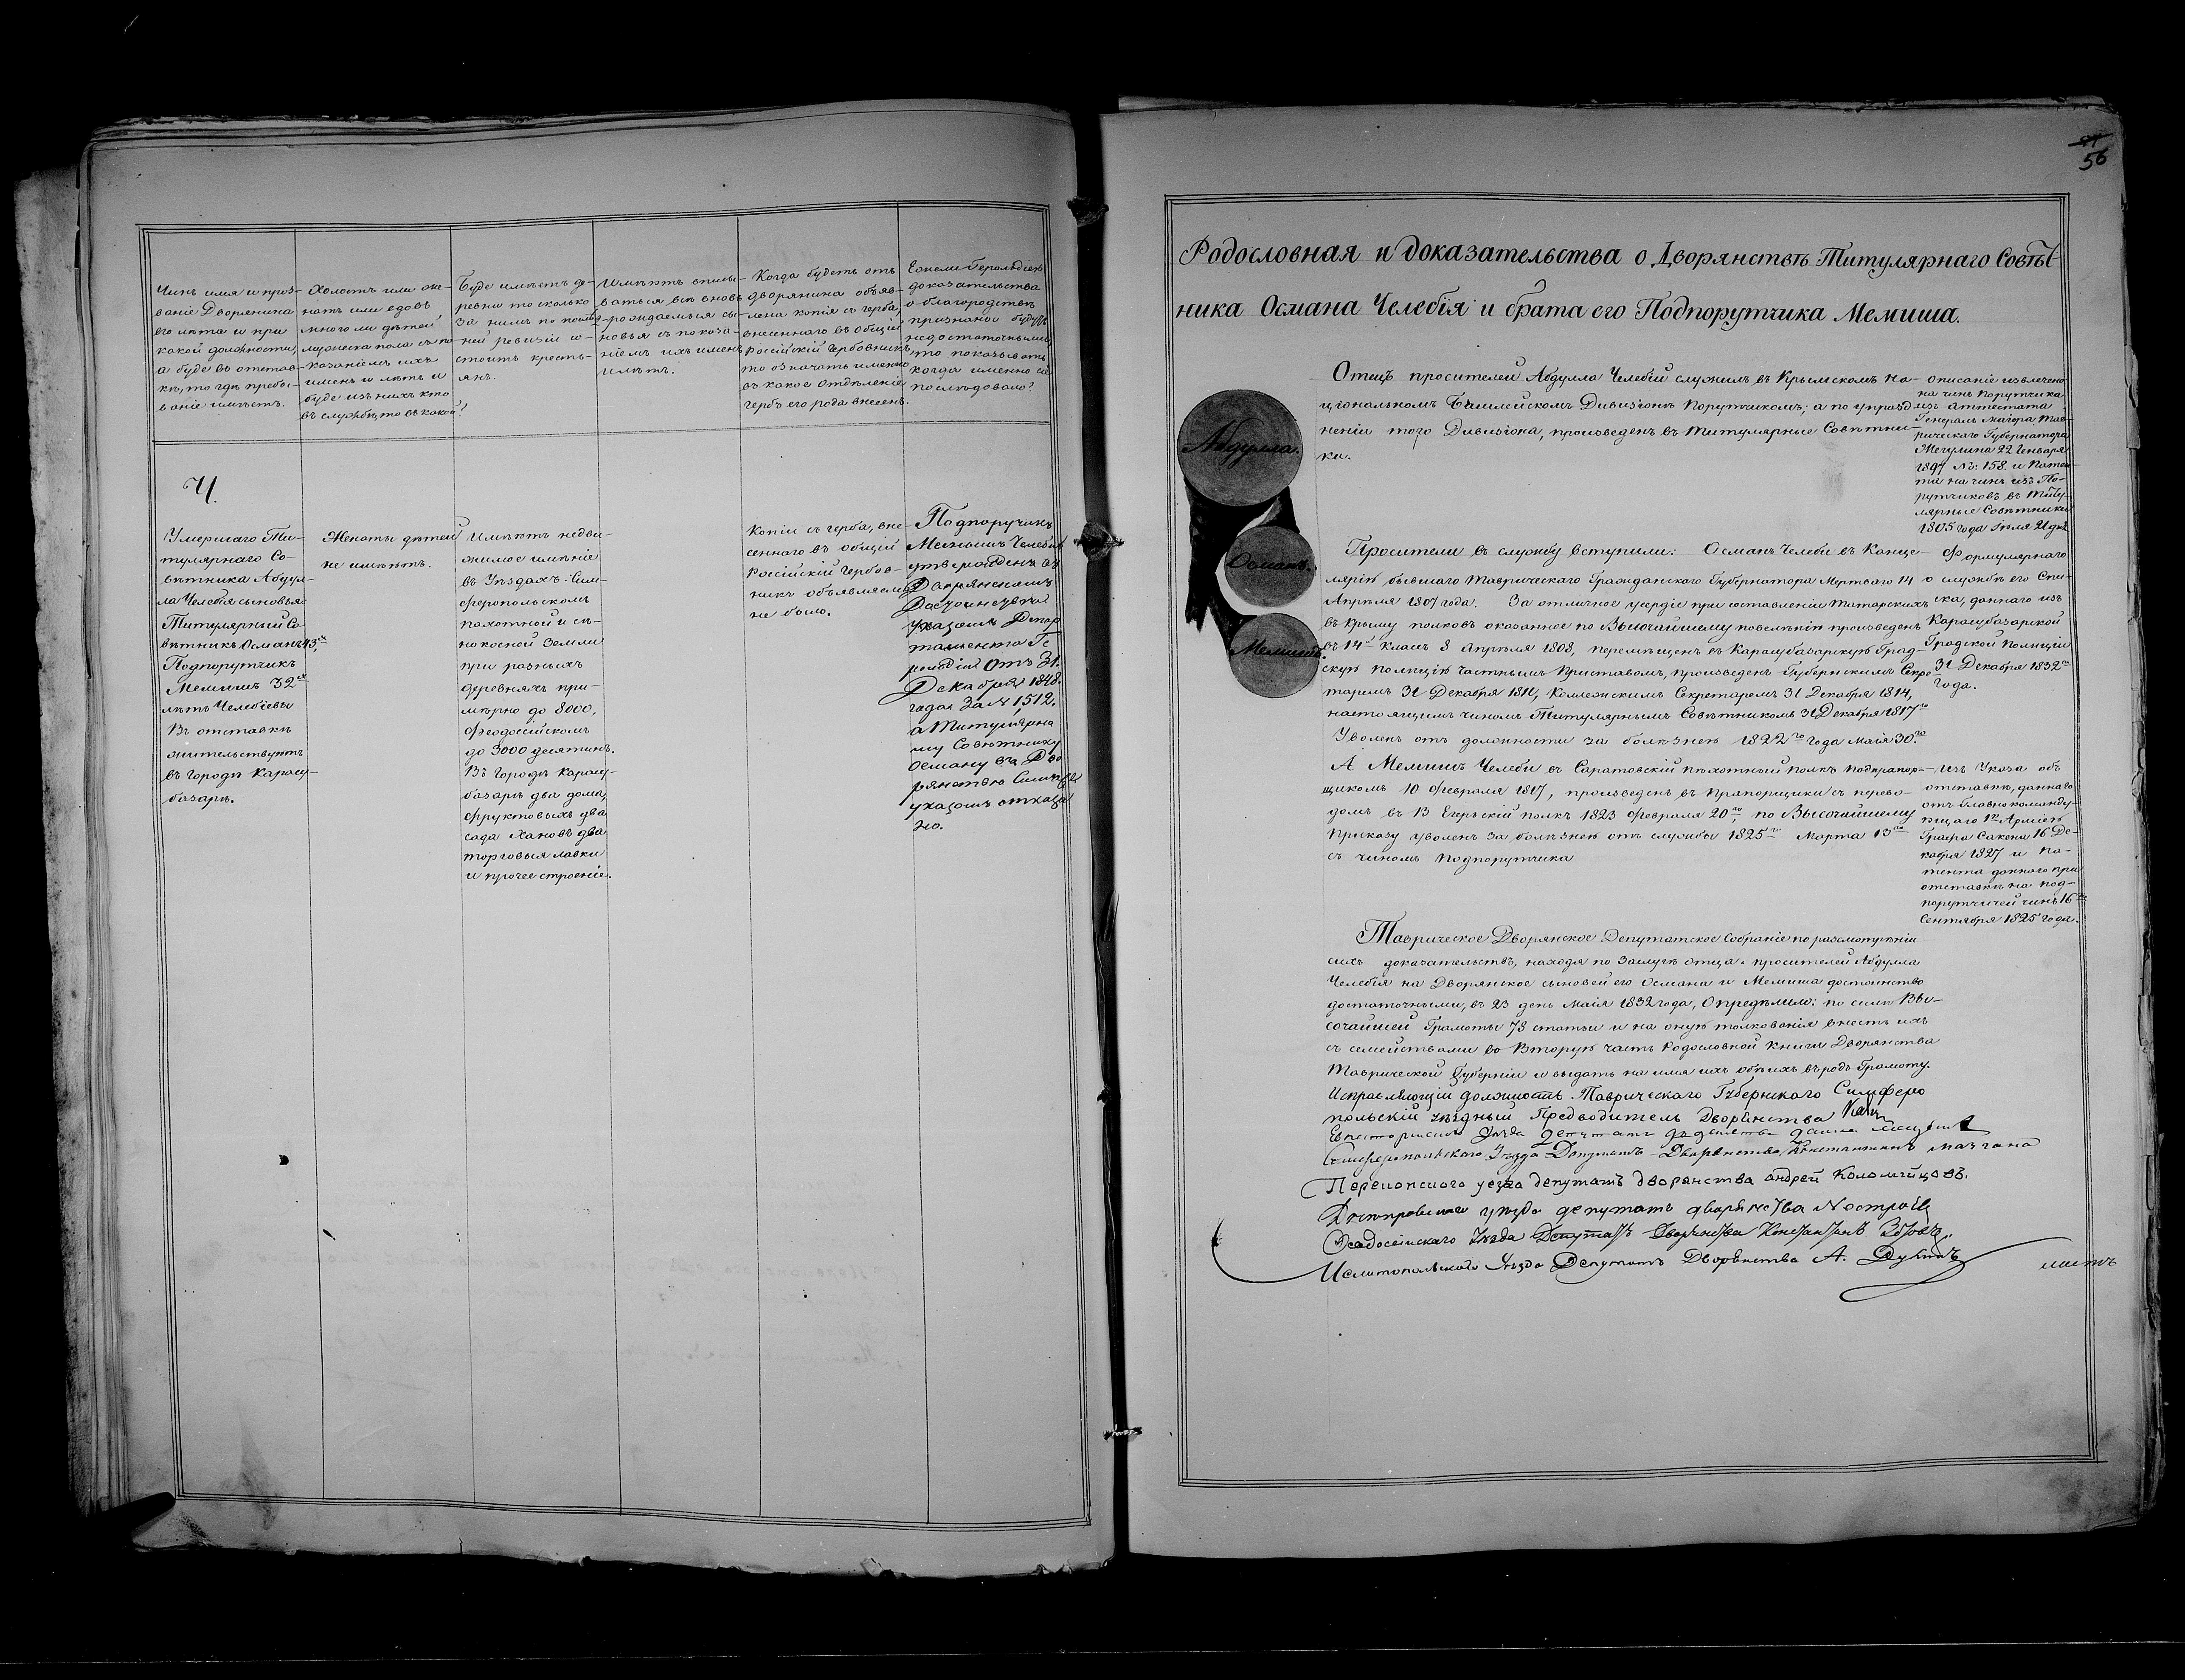 Чинъ имя и проз-
ваніе Дворянина
его лѣта и при
какой должности,
а буде въ отстав-
кѣ, то гдѣ пребы-
ваніе имѣетъ.
Холостъ или же-
натъ или вдовъ
много ли дѣтей
мужеска пола съ по-
казаніемъ ихъ
именъ и лѣтъ и
буде изъ нихъ кто
въ службѣ, то въ какой?
Буде имѣетъ де-
ревни то сколько
за нимъ по послѣд-
ней ревизіи со-
стоитъ кресть-
янъ.
Имѣютъ вписы-
ваться всѣ вновь
рождаемыя сы-
новья съ показа-
ніемъ ихъ именъ
и лѣтъ.
Когда будетъ отъ
дворянина объяв-
лена копія съ герба,
внесеннаго въ Общій
Россійскій Гербовникъ
то означать именно
въ какое отдѣленіе
гербъ его рода внесенъ.
Если Герольдіею
доказательства
о благородствѣ
признаны будутъ
недостаточными
то показывать
когда именно сіе
послѣдовало?
Ч.
Умершаго Ти-
тулярнаго Со-
вѣтника Абдул-
ла Челебія сыновья:
Титулярный Со-
вѣтникъ Османъ 43,
Подпорутчикъ
Мемишъ 32
лѣтъ Челебіевы
Въ отставкѣ
жительствуютъ
въ городѣ Карасу-
базарѣ.
Женаты дѣтей
не имѣютъ.
Имѣютъ недви-
жимое имѣніе
въ Уѣздахъ: Сим-
феропольскомъ
пахотной и сѣ-
нокосной земли
при разныхъ
деревняхъ при-
мѣрно до 8000,
Феодосійскомъ
до 3000 десятинъ.
Въ городѣ Карасу-
базарѣ два дома,
фруктовыхъ два
сада Хановъ два
торговыя лавки
и прочее строеніе.
Копіи съ герба, вне-
сеннаго въ общій
Россійскій Гербов-
никъ объявляемо
не было.
Подпоручикъ
Мемишъ Челебіевъ
утвержденъ въ
Дворянскомъ
Достоинствѣ
указомъ Депар
тамента Ге
рольдіи отъ 31.
Декабря 1848.
года за № 1512.
а Титулярно
му Совѣтнику
Осману въ Дво
рянствѣ Симъ же
указомъ отказа
но.
56
Родословная и доказательства о Дворянствѣ Титулярнаго Совѣт-
ника Османа Челебія и брата его Подпорутчика Мемиша.
Абдулла.
Османъ.
Мемишъ.
Отецъ просителей Абдулла Челебій служилъ въ Крымскомъ На-
ціональномъ Бешлейскомъ Дивизіонѣ Порутчикомъ; а по упразд-
неніи того Дивизіона, произведенъ въ Титулярные Совѣтни-
ки.
Описаніе извлечено
на чинъ Порутчика
изъ аттестата
Генералъ Маіора, Тав-
рическаго Губернатора
22 Генваря
№: 158. и Патен-
та на чинъ изъ По-
рутчиковъ въ Титу-
лярные Совѣтники
1805 года Іюля 21 дня
Просители въ службу вступили: Османъ Челеби въ Канце-
лярію бывшаго Таврическаго Гражданскаго Губернатора Мертваго 14
Апрѣля 1807 года. За отличное усердіе при составленіи татарскихъ
въ Крыму полковъ оказанное по Высочайшему повелѣнію произведенъ
въ 14 класъ 8 Апрѣля 1808, перемѣщенъ въ Карасубазарскую Град-
скую Полицію Частнымъ Приставомъ, произведенъ Губернскимъ Секре-
таремъ 31 Декабря 1811, Коллежскимъ Секретаремъ 31 Декабря 1814,
настоящимъ чиномъ Титулярнымъ Совѣтникомъ 31 Декабря 1817
Уволенъ отъ должности за болѣзнею 1822 го года Маія 30.
Формулярнаго
о службѣ его Спи-
ска, даннаго изъ
Карасубазарской
Градской Полиціи
31 Декабря 1832
года.
А Мемишъ Челеби въ Саратовскій пѣхотный полкъ подпрапор-
щикомъ 10 Февраля 1817, произведенъ въ Прапорщики съ перево-
домъ въ 13 Егерскій полкъ 1823 Февраля 20 го по Высочайшему
Приказу уволенъ за болѣзнею отъ службы 1825 го Марта 13 го
съ чиномъ Подпорутчика
Изъ Указа объ
отставкѣ, даннаго
отъ Главнокоманду-
ющаго 1 й Арміею
Графа Сакена 16 Де-
кабря 1827 и Па-
тента данного при
отставкѣ на под-
порутчичей чинъ 16
Сентября 1825 года.
Таврическое Дворянское Депутатское Собраніе по разсмотрѣніи
сихъ доказательствъ, находя по Заслугѣ отца просителей Абдулла
Челебія на Дворянское сыновей его Османа и Мемиша достоинство
достаточными, въ 23 день Маія 1832 года, Опредѣлило: по силѣ Вы-
сочайшей Грамоты 78 статьи и на оную толкованія внесть ихъ
съ семействами во Вторую часть Родословной книги Дворянства
Таврической Губерніи и выдать на имя ихъ обѣихъ въ родъ Грамоту.
Исправляющій должность Таврическаго Губернскаго Симферо
польскій уѣздный Предводитель Дворянства
Симферопольскаго Уѣзда Депутатъ Дворянства Константинъ
Перекопского уезда депутатъ дворянства андрей Коломійцовъ.
Днѣпровскаго уѣзда депутатъ дворянства
Феодосійскаго Уѣзда Депутатъ Дворянства Константинъ
Мелитопольскаго Уѣзда Депутатъ Дворянства А.